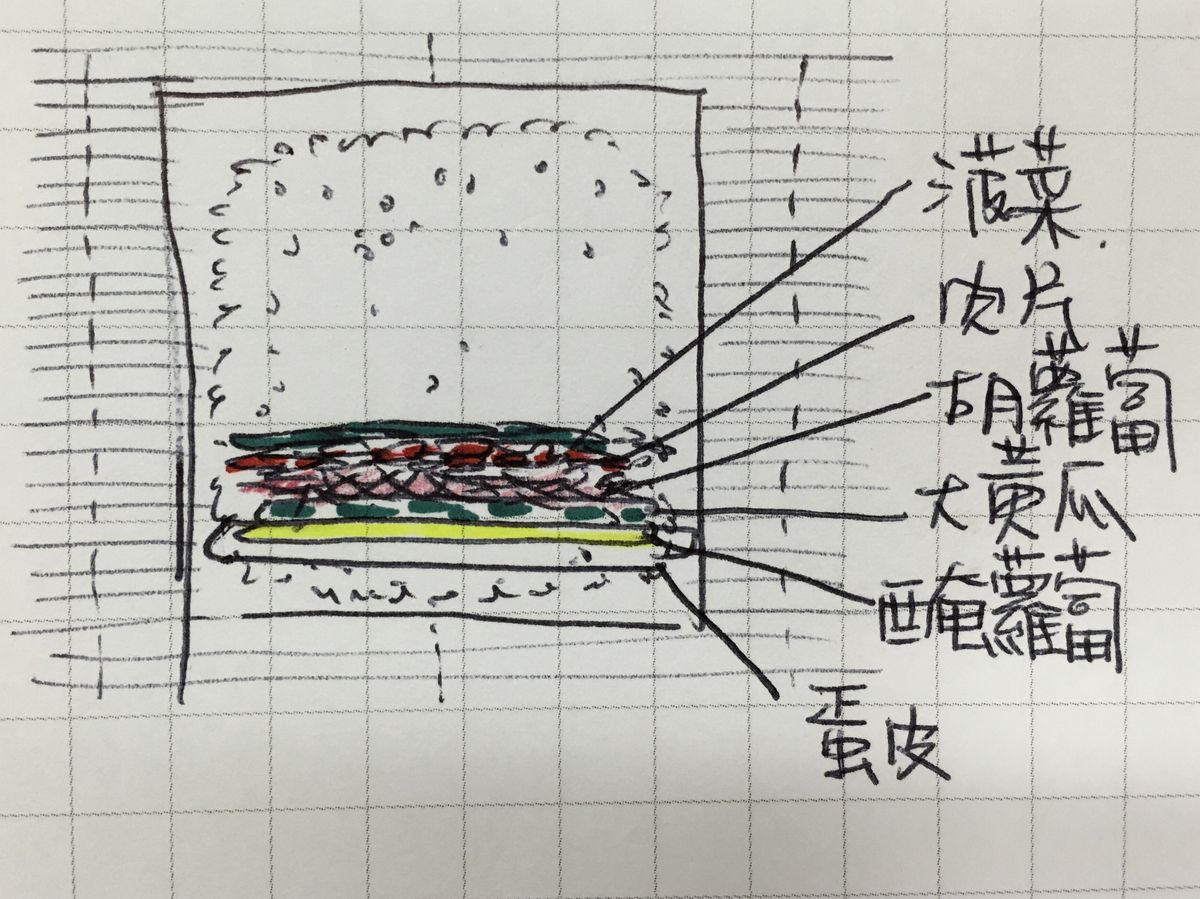 菠菜
肉片
胡蘿蔔
大黃瓜
醃蘿蔔
蛋皮